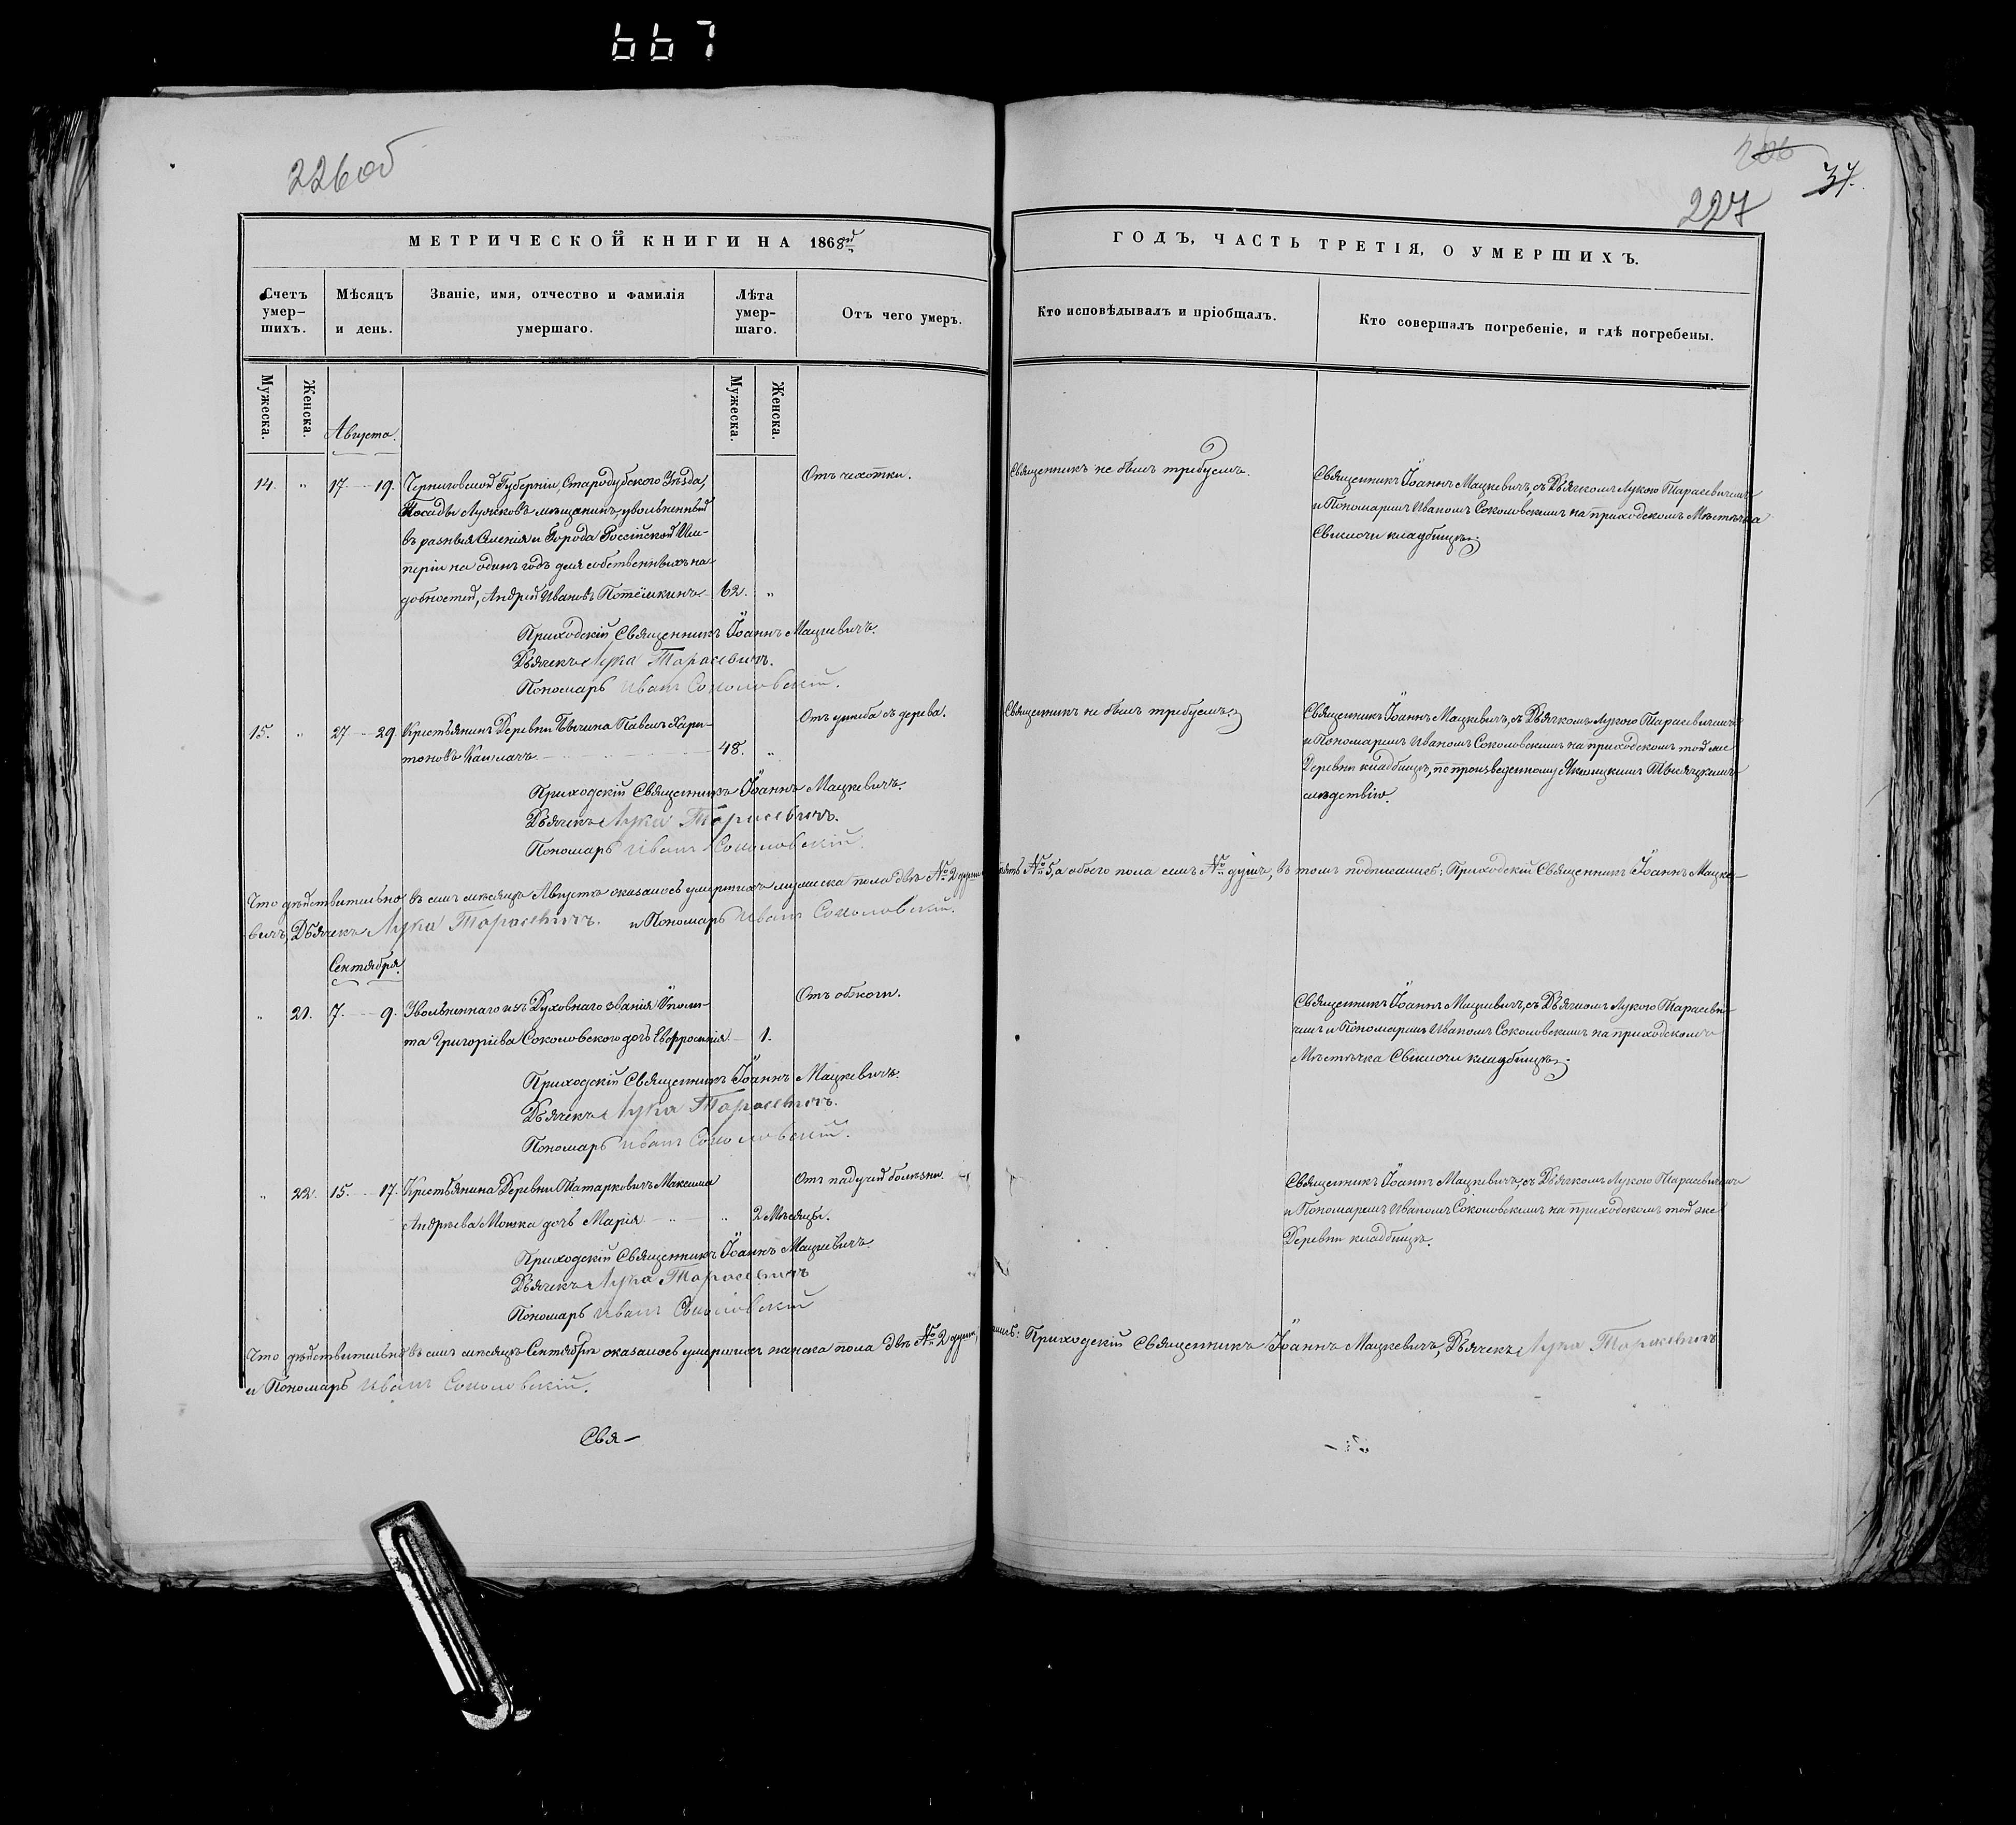 667
226об
227
37.
МЕТРИЧЕСКОЙ КНИГИ НА 1868й
ГОДЪ, ЧАСТЬ ТРЕТІЯ, О УМЕРШИХЪ.
Счетъ умер-
шихъ.
Мѣсяцъ
и день.
Званіе, имя, отчество и фамилія
умершаго.
Лѣта
умер-
шаго.
Отъ чего умеръ.
Кто исповѣдывалъ и пріобщалъ.
Кто совершалъ погребеніе, и гдѣ погребены.
Мужеска.
Женска.
Мужеска.
Женска.
Августа.
14. " 17. 19. Черниговской Губерніи, Стародубского Уѣзда,
Посада Лужковъ мѣщанинъ, увольненный
въ разныя Селенія и Города Россійской Им-
періи на одинъ годъ для собственныхъ на-
добностей, Андрей Ивановъ Потёмкинъ 62. "
Отъ чахотки.
Священникъ не былъ требуемъ.
Священникъ Іоаннъ Мацкевичъ, съ Дьячкомъ Лукою Тарасевичемъ
и Пономаремъ Иваномъ Соколовскимъ на приходскомъ Мѣстечка
Свислочи кладбищѣ.
Приходскій Священникъ Іоаннъ Мацкевичъ.
Дьячекъ Лука Тарасевичъ.
Пономарь Иванъ Соколовскій.
15. " 27 29. Крестьянинъ Деревни Павелъ Хари-
тоновъ 48. "
Отъ ушиба съ дерева.
Священникъ не былъ требуемъ.
Священникъ Іоаннъ Мацкевичъ, съ Дьячкомъ Лукою Тарасевичемъ
и Пономаремъ Иваномъ Соколовскимъ на приходскомъ той же
Деревни кладбищѣ, по произведенному
слѣдствію.
Приходскій Священникъ Іоаннъ Мацкевичъ.
Дьячекъ Лука Тарасевичъ.
Пономарь Иванъ Соколовскій.
Что дѣйствительно въ семъ мѣсяцѣ Августѣ оказалось умершихъ мужеска пола двѣ № 2 души № 5, а обоего пола семь № душъ, въ томъ подписались: Приходскій Священникъ Іоаннъ Мацке-
вичъ, Дьячекъ Лука Тарасевичъ. и Пономарь Иванъ Соколовскій.
Сентября.
" 21. 7. 9. Увольненнаго изъ Духовнаго званія Ипполи-
та Григоріева Соколовского дочь Евфросинія 1.
Священникъ Іоаннъ Мацкевичъ, съ Дьячкомъ Лукою Тарасеви-
чемъ и Пономаремъ Иваномъ Соколовскимъ на приходскомъ
Мѣстечка Свислочи кладбищѣ.
Приходскій Священникъ Іоаннъ Мацкевичъ.
Дьячекъ Лука Тарасевичъ.
Пономарь Иванъ Соколовскій.
" 22. 15. 17. Крестьянина Деревни Татарковичъ Максима
Андреева дочь Марія " 2 Мѣсяцы.
Отъ падучей болѣзни.
Священникъ Іоаннъ Мацкевичъ, съ Дьячкомъ Лукою Тарасевичемъ
и Пономаремъ Иваномъ Соколовскимъ на приходскомъ той же
Деревни кладбищѣ.
Приходскій Священникъ Іоаннъ Мацкевичъ.
Дьячекъ Лука Тарасевичъ
Пономарь Иванъ Соколовскій
Что дѣйствительно въ семъ мѣсяцѣ Сентябрѣ оказалось умершихъ женска пола двѣ № 2 души, Приходскій Священникъ Іоаннъ Мацкевичъ, Дьячекъ Лука Тарасевичъ
и Пономарь Иванъ Соколовскій.
Свя-